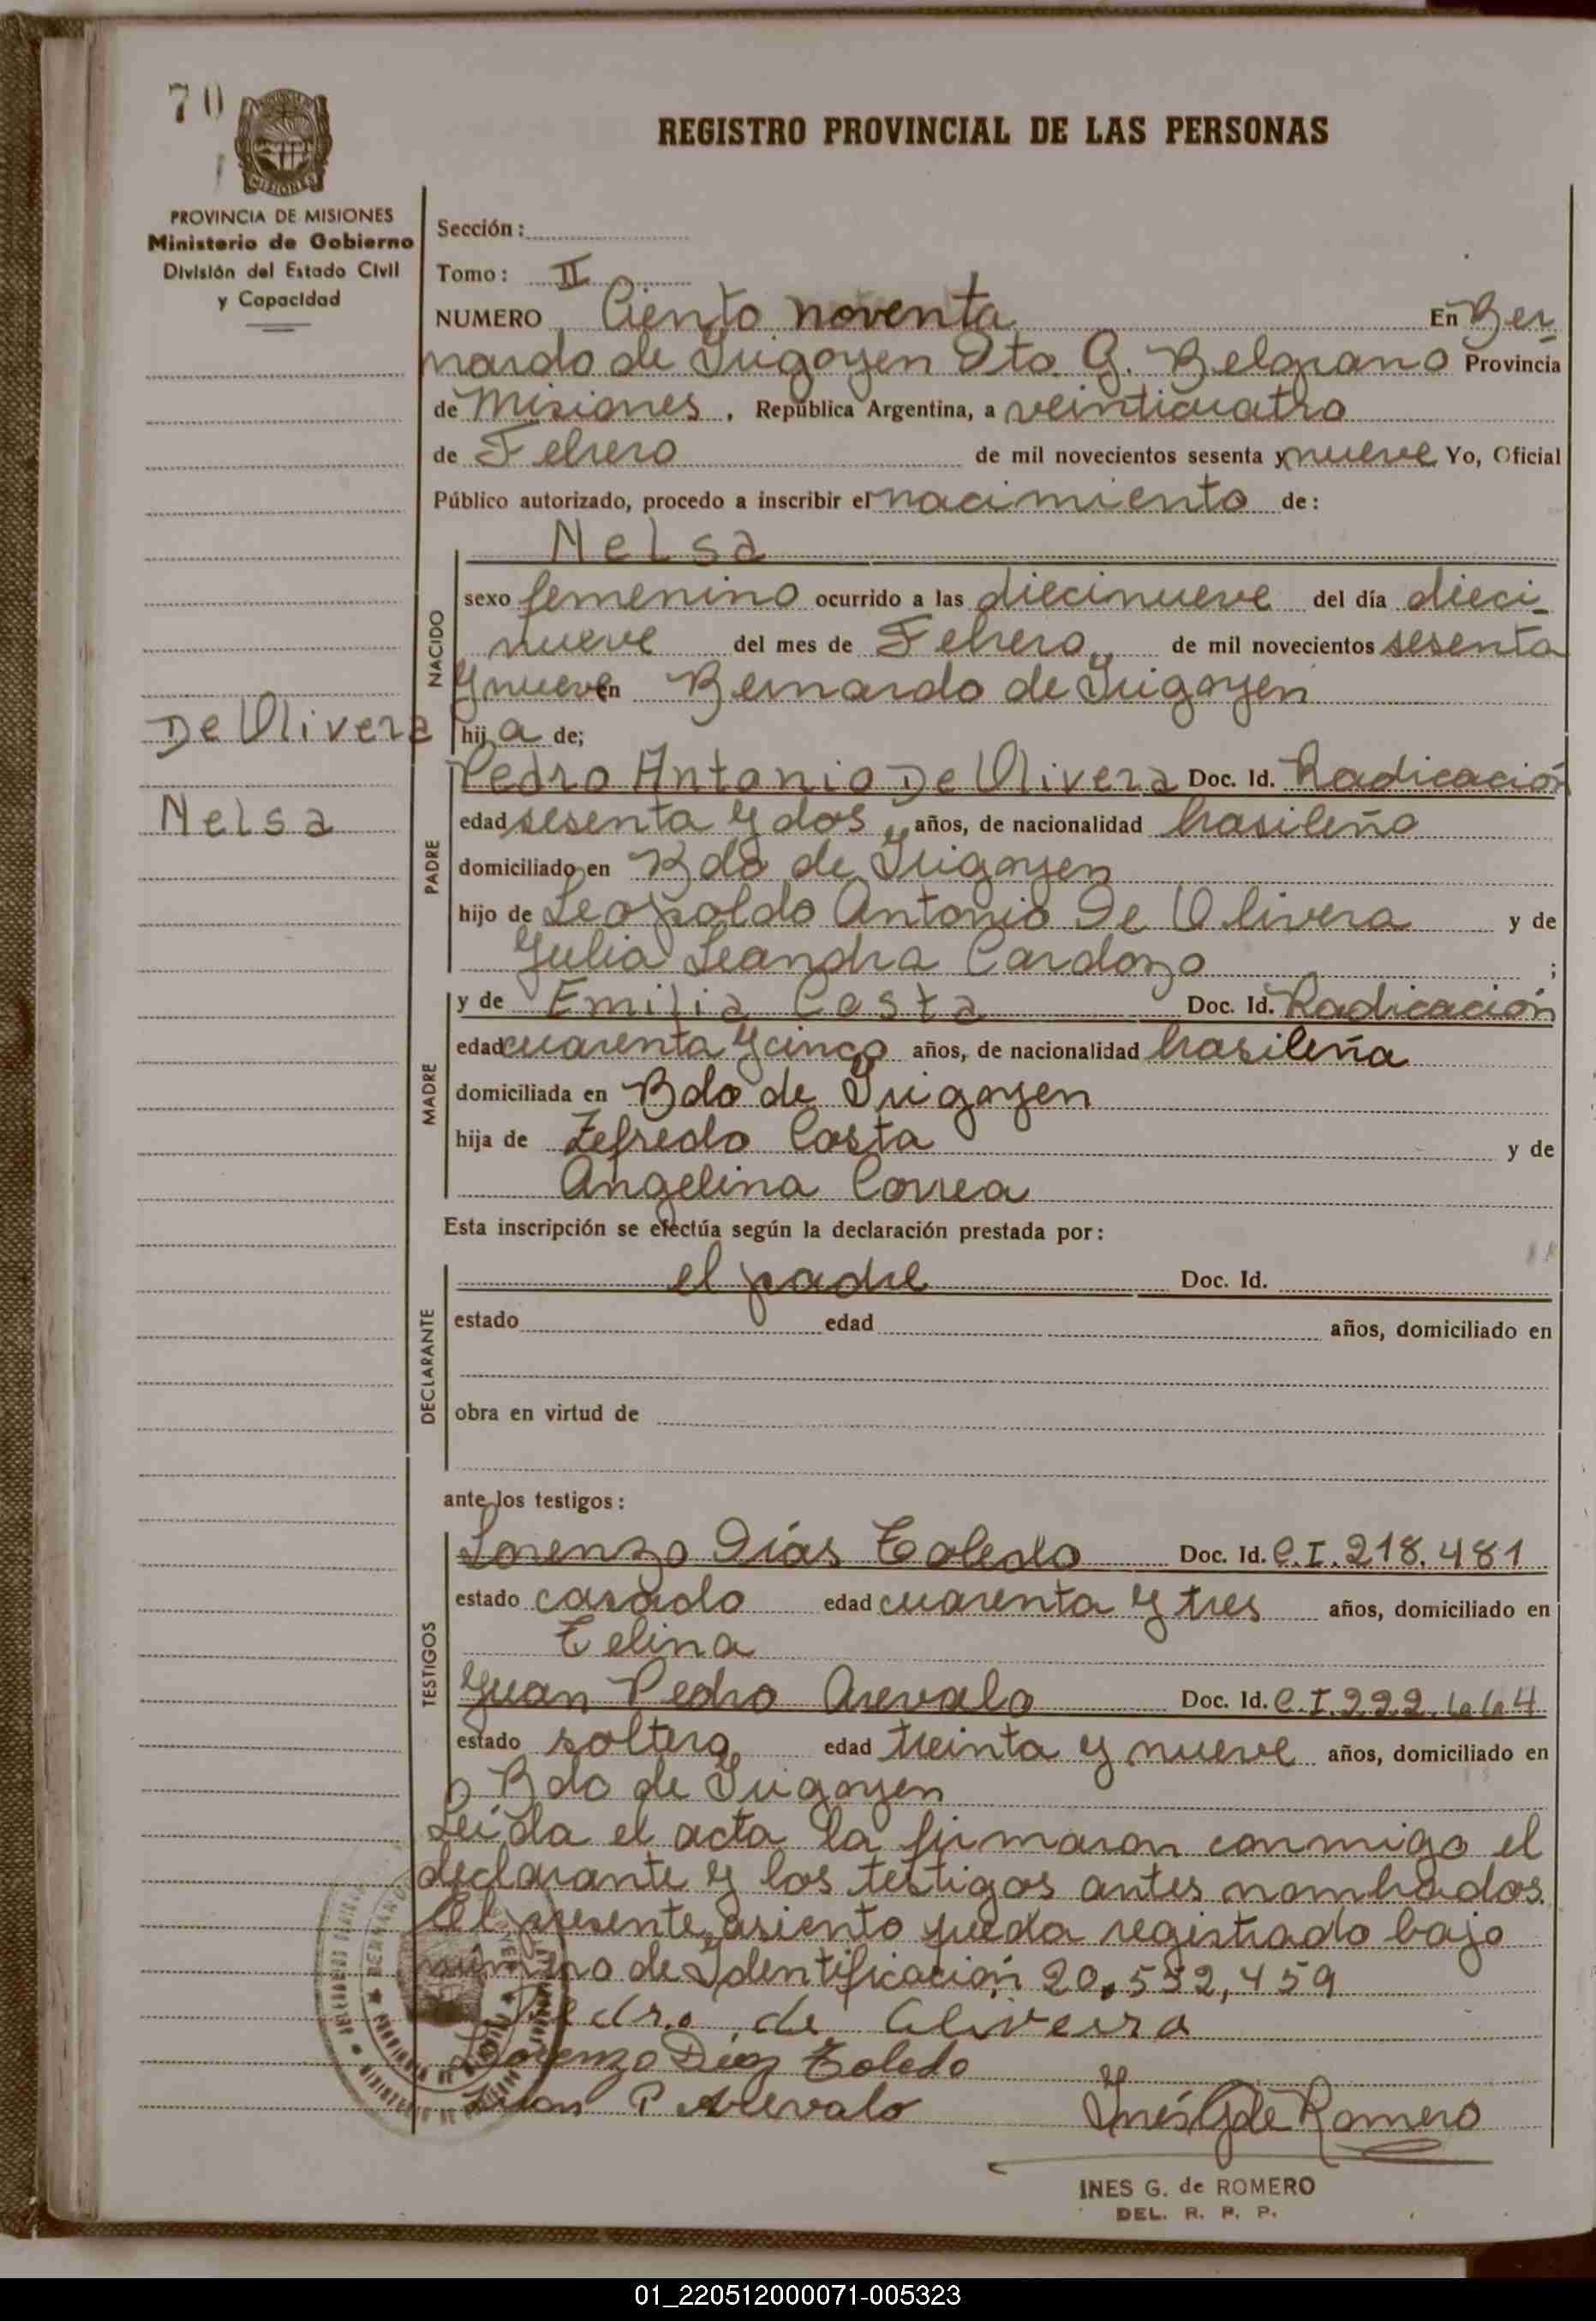 70
MISIONES
REGISTRO PROVINCIAL DE LAS PERSONAS
PROVINCIA DE MISIONES
Ministerio de Gobierno
División del Estado Civil
y Capacidad
De Olivera
Nelsa
Sección:
Tomo: II
NUMERO Ciento noventa En Ber-
nardo de Irigoyen Dto. G. Belgrano Provincia
de Misiones, República Argentina, a veinticuatro
de Febrero de mil novecientos sesenta y nueve Yo, Oficial
Público autorizado, procedo a inscribir el nacimiento de:
NACIDO
Nelsa
sexo femenino ocurrido a las diecinueve del día dieci-
nueve del mes de Febrero de mil novecientos sesenta
y nueve en Bernardo de Irigoyen
hija de;
PADRE
Pedro Antonio De Olivera Doc. Id. Radicación
edad sesenta y dos años, de nacionalidad brasileño
domiciliado en Bdo de Irigoyen
hijo de Leopoldo Antonio De Olivera y de
Julia Leandra Cardozo ;
MADRE
y de Emilia Costa Doc. Id. Radicación
edad cuarenta y cinco años, de nacionalidad brasileña
domiciliada en Bdo de Irigoyen
hija de Zefredo Costa y de
Angelina Correa
Esta inscripción se efectúa según la declaración prestada por:
DECLARANTE
el padre Doc. Id.
estado edad años, domiciliado en
obra en virtud de
ante los testigos:
TESTIGOS
Lorenzo Días Toledo Doc. Id. C.I. 218.481
estado casado edad cuarenta y tres años, domiciliado en
Telina
Juan Pedro Arevalo Doc. Id. C.I. 222.664
estado soltero edad treinta y nueve años, domiciliado en
Bdo de Irigoyen
Leída el acta la firmaron conmigo el
declarante y los testigos antes nombrados.
El presente asiento queda registrado bajo
número de Identificación 20.532,459
Pedro de Oliveira
Lorenzo Diaz Toledo
Juan P Arevalo Inés G de Romero
INES G. de ROMERO
DEL. R. P. P.
01_220512000071-005323